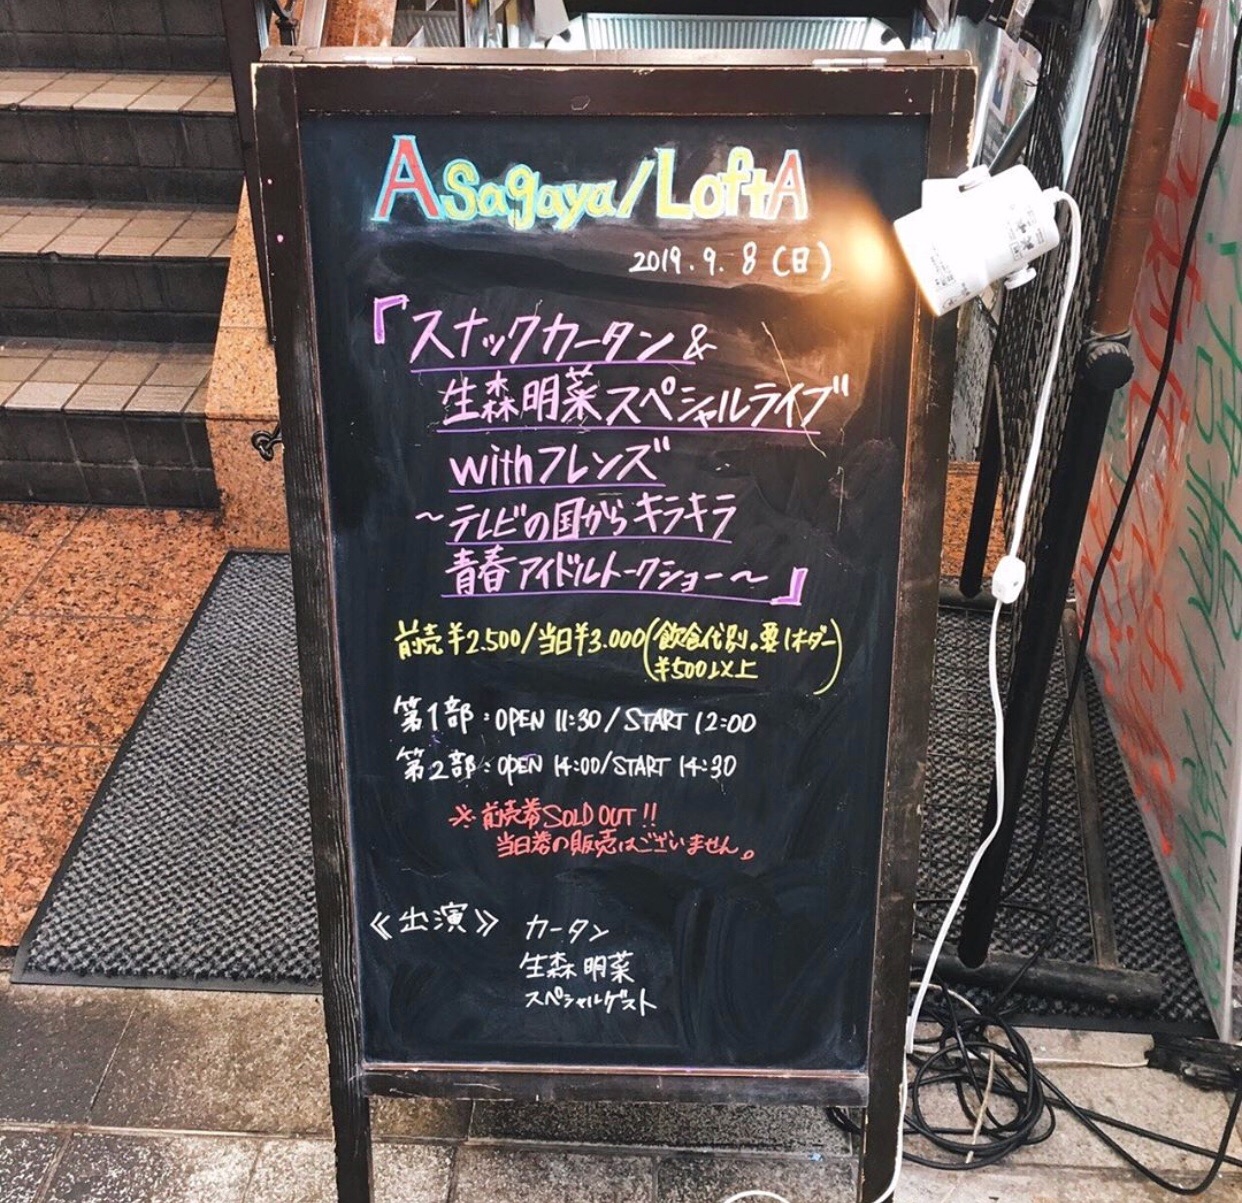 Asagaya/LoftA
2019.9.8(日)
『スナックカータン&
生森明菜スペシャルライブ
withフレンズ
～テレビの国からキラキラ
青春アイドルトークショー～』
前売¥2.500/当日¥3.000(飲食代別。要1オーダー
¥500以上)
第1部:OPEN 11:30/START 12:00
第2部:OPEN 14:00/START 14:30
※前売券SOLD OUT!!
当日券の販売はございません。
《出演》 カータン
生森明菜
スペシャルゲスト